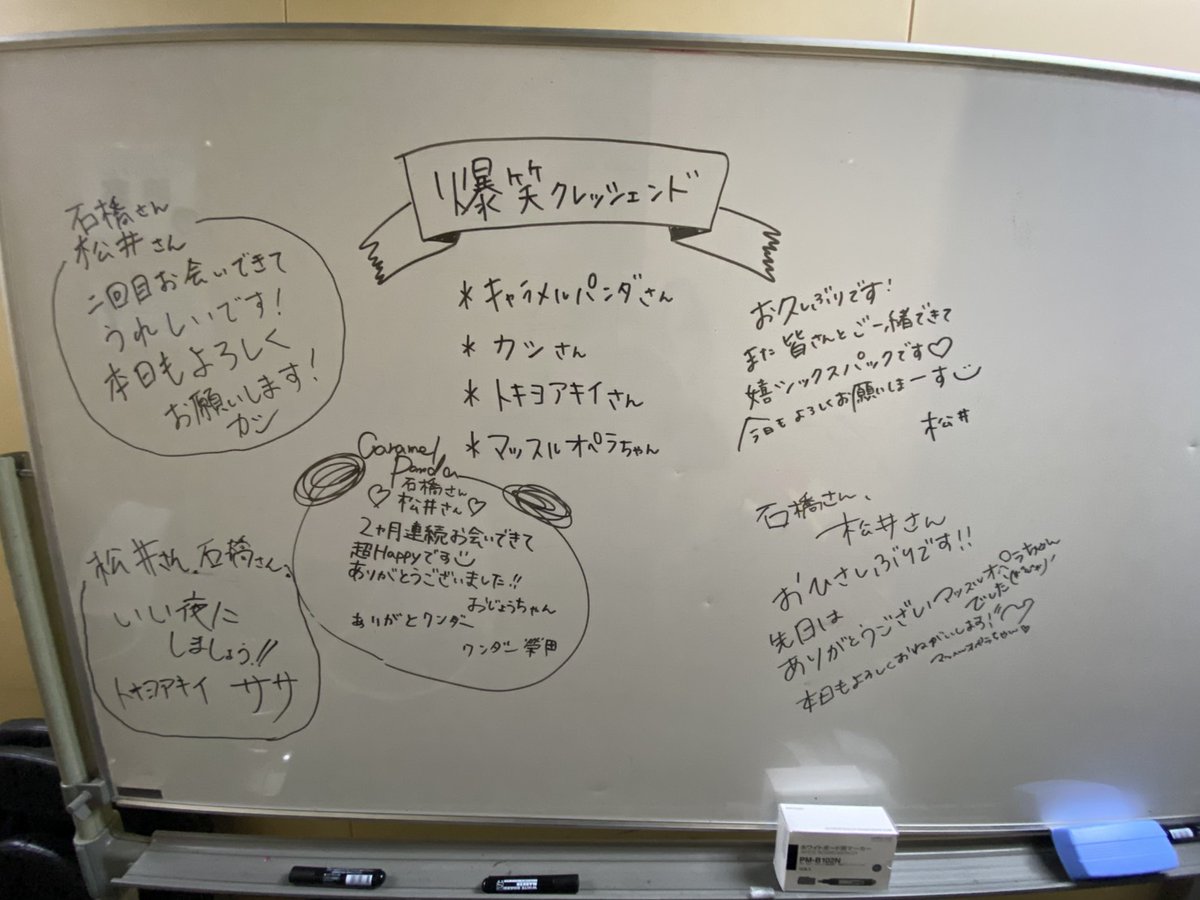 爆笑クレッシェンド
*キャラメルパンダさん
*カンさん
*トキヨアキイさん
*マッスルオペラちゃん
石橋さん
松井さん
二回目お会いできて
うれしいです!
本日もよろしく
お願いします!
カン
お久しぶりです!
また皆さんとご一緒できて
嬉シックスパックです♡
今日もよろしくお願いしまーす
松井
Caramel
Panda
石橋さん
♡松井さん♡
2ヶ月連続お会いできて
超Happyです
ありがとうございました!!
おじょうちゃん
ありがとワンダー
ワンダー榮田
松井さん、石橋さん、
いい夜に
しましょう!!
トキヨアキイ ササ
石橋さん、
松井さん
おひさしぶりです!!
先日は
ありがとうござい マッスルオペラちゃん
でした
本日もよろしくおねがいします!!♡
マッスルオペラちゃん
ホワイトボード用マーカー
PM-B102N